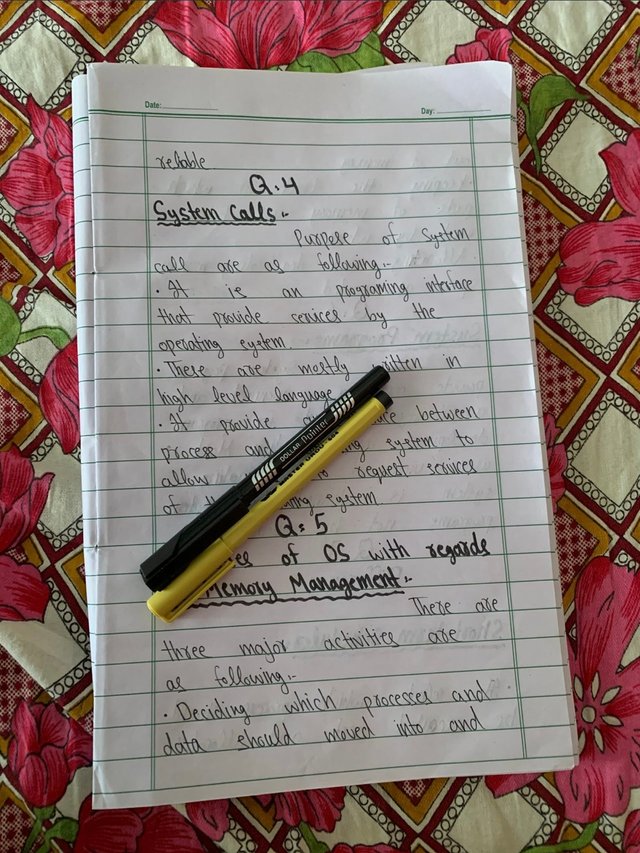 Date:
Day:
reliable
Q.4
System Calls:-
Purpose of System
call are as following:-
• It is an programing interface
that provide services by the
operating system.
• These are mostly written in
high level language
• It provide between
process and system to
allow to request services
of system
Q:5
of OS with regards
Memory Management:-
There are
three major activities are
as following:-
• Deciding which processes and
data should moved into and
DOLLAR Pointer